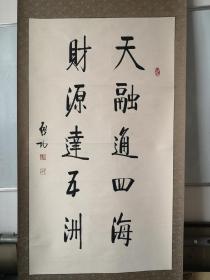 天融通四海
財源達五洲
啟功